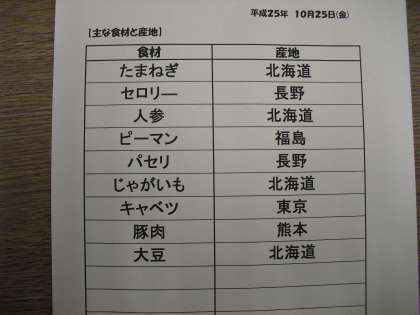 平成25年 10月25日(金)
【主な食材と産地】
食材 産地
たまねぎ 北海道
セロリ― 長野
人参 北海道
ピーマン 福島
パセリ 長野
じゃがいも 北海道
キャベツ 東京
豚肉 熊本
大豆 北海道